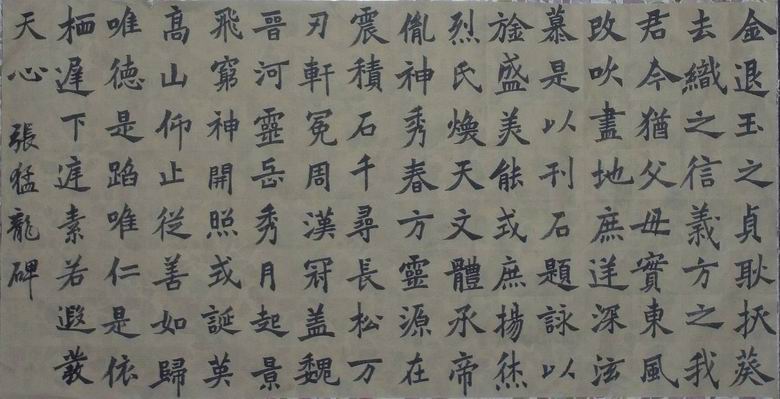 金退玉之貞耿拔葵
去織之信義方之我
君今猶父母實東風
改吹盡地庶迋深泫
慕是以刊石題詠以
旍盛美能式庶揚烋
烈氏煥天文體承帝
胤神秀春方靈源在
震積石千尋長松万
刃軒冕周漢冠盖魏
晉河靈岳秀月起景
飛窮神開照式誕英
高山仰止從善如歸
唯德是蹈唯仁是依
栖遲下庭素若遐叢
天心 張猛龍碑